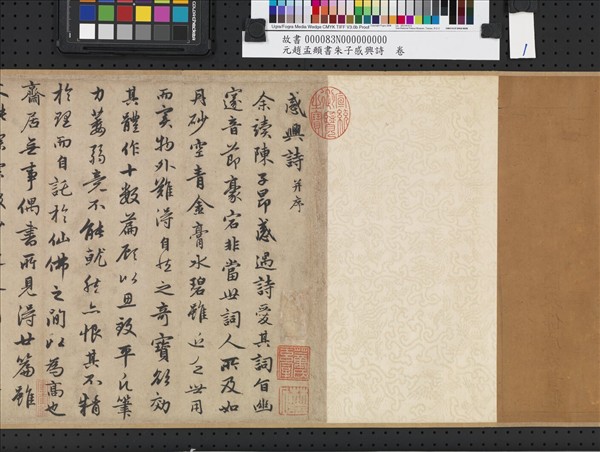 Ugra/Fogra Media Wedge CMYK TIFF
故書 000083N000000000
元趙孟頫書朱子感興詩 卷
1
感興詩 并序
余讀陳子昂感遇詩愛其詞旨幽
邃音節豪宕非當世詞人所及如
丹砂空青金膏水碧雖近乏世用
而實物外難得自然之奇寶欲效
其體作十數篇顧以思致平凡筆
力萎弱竟不能就然亦恨其不精
於理而自託於仙佛之間以為高也
齋居無事偶書所見得廿篇雖